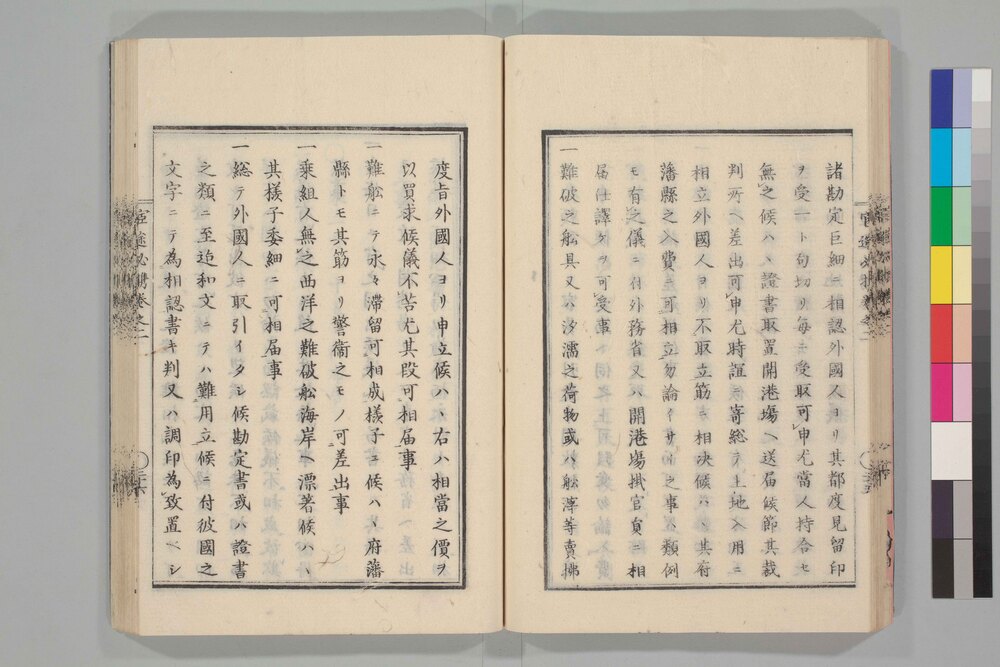 諸勘定巨細ニ相認外國人ヨリ其都度見留印
ヲ受一ト句切リ毎ニ受取可申尤當人持合セ
無之候ハヽ證書取置開港場ヘ送届候節其裁
判所ヘ差出可申尤時誼ニ寄総テ土地入用ニ
相立外國人ヨリ不取立筋ニ相決候ハヽ其府
藩縣之入費ニ可相立勿論イサ之事ハ類例
モ有之儀ニ付外務省又ハ開港場掛官員ニ相
届仕譯ケヲ可受事
一難破之舩具又ハ汐濡之荷物或ハ舩滓等賣拂
度旨外國人ヨリ申立候ハヽ右ハ相當之價ヲ
以買求候儀不苦尤其段可相届事
一難舩ニテ永々滯留可相成様子ニ候ハヽ府藩
縣トモ其筋ヨリ警衞之モノ可差出事
一乘組人無之西洋之難破舩海岸ヘ漂著候ハヽ
其様子委細ニ可相届事
一総テ外國人ニ取引イタシ候勘定書或ハ證書
之類ニ至迠和文ニテハ難用立候ニ付彼國之
文字ニテ為相認書キ判又ハ調印為致置ヘシ
官途必携卷之二